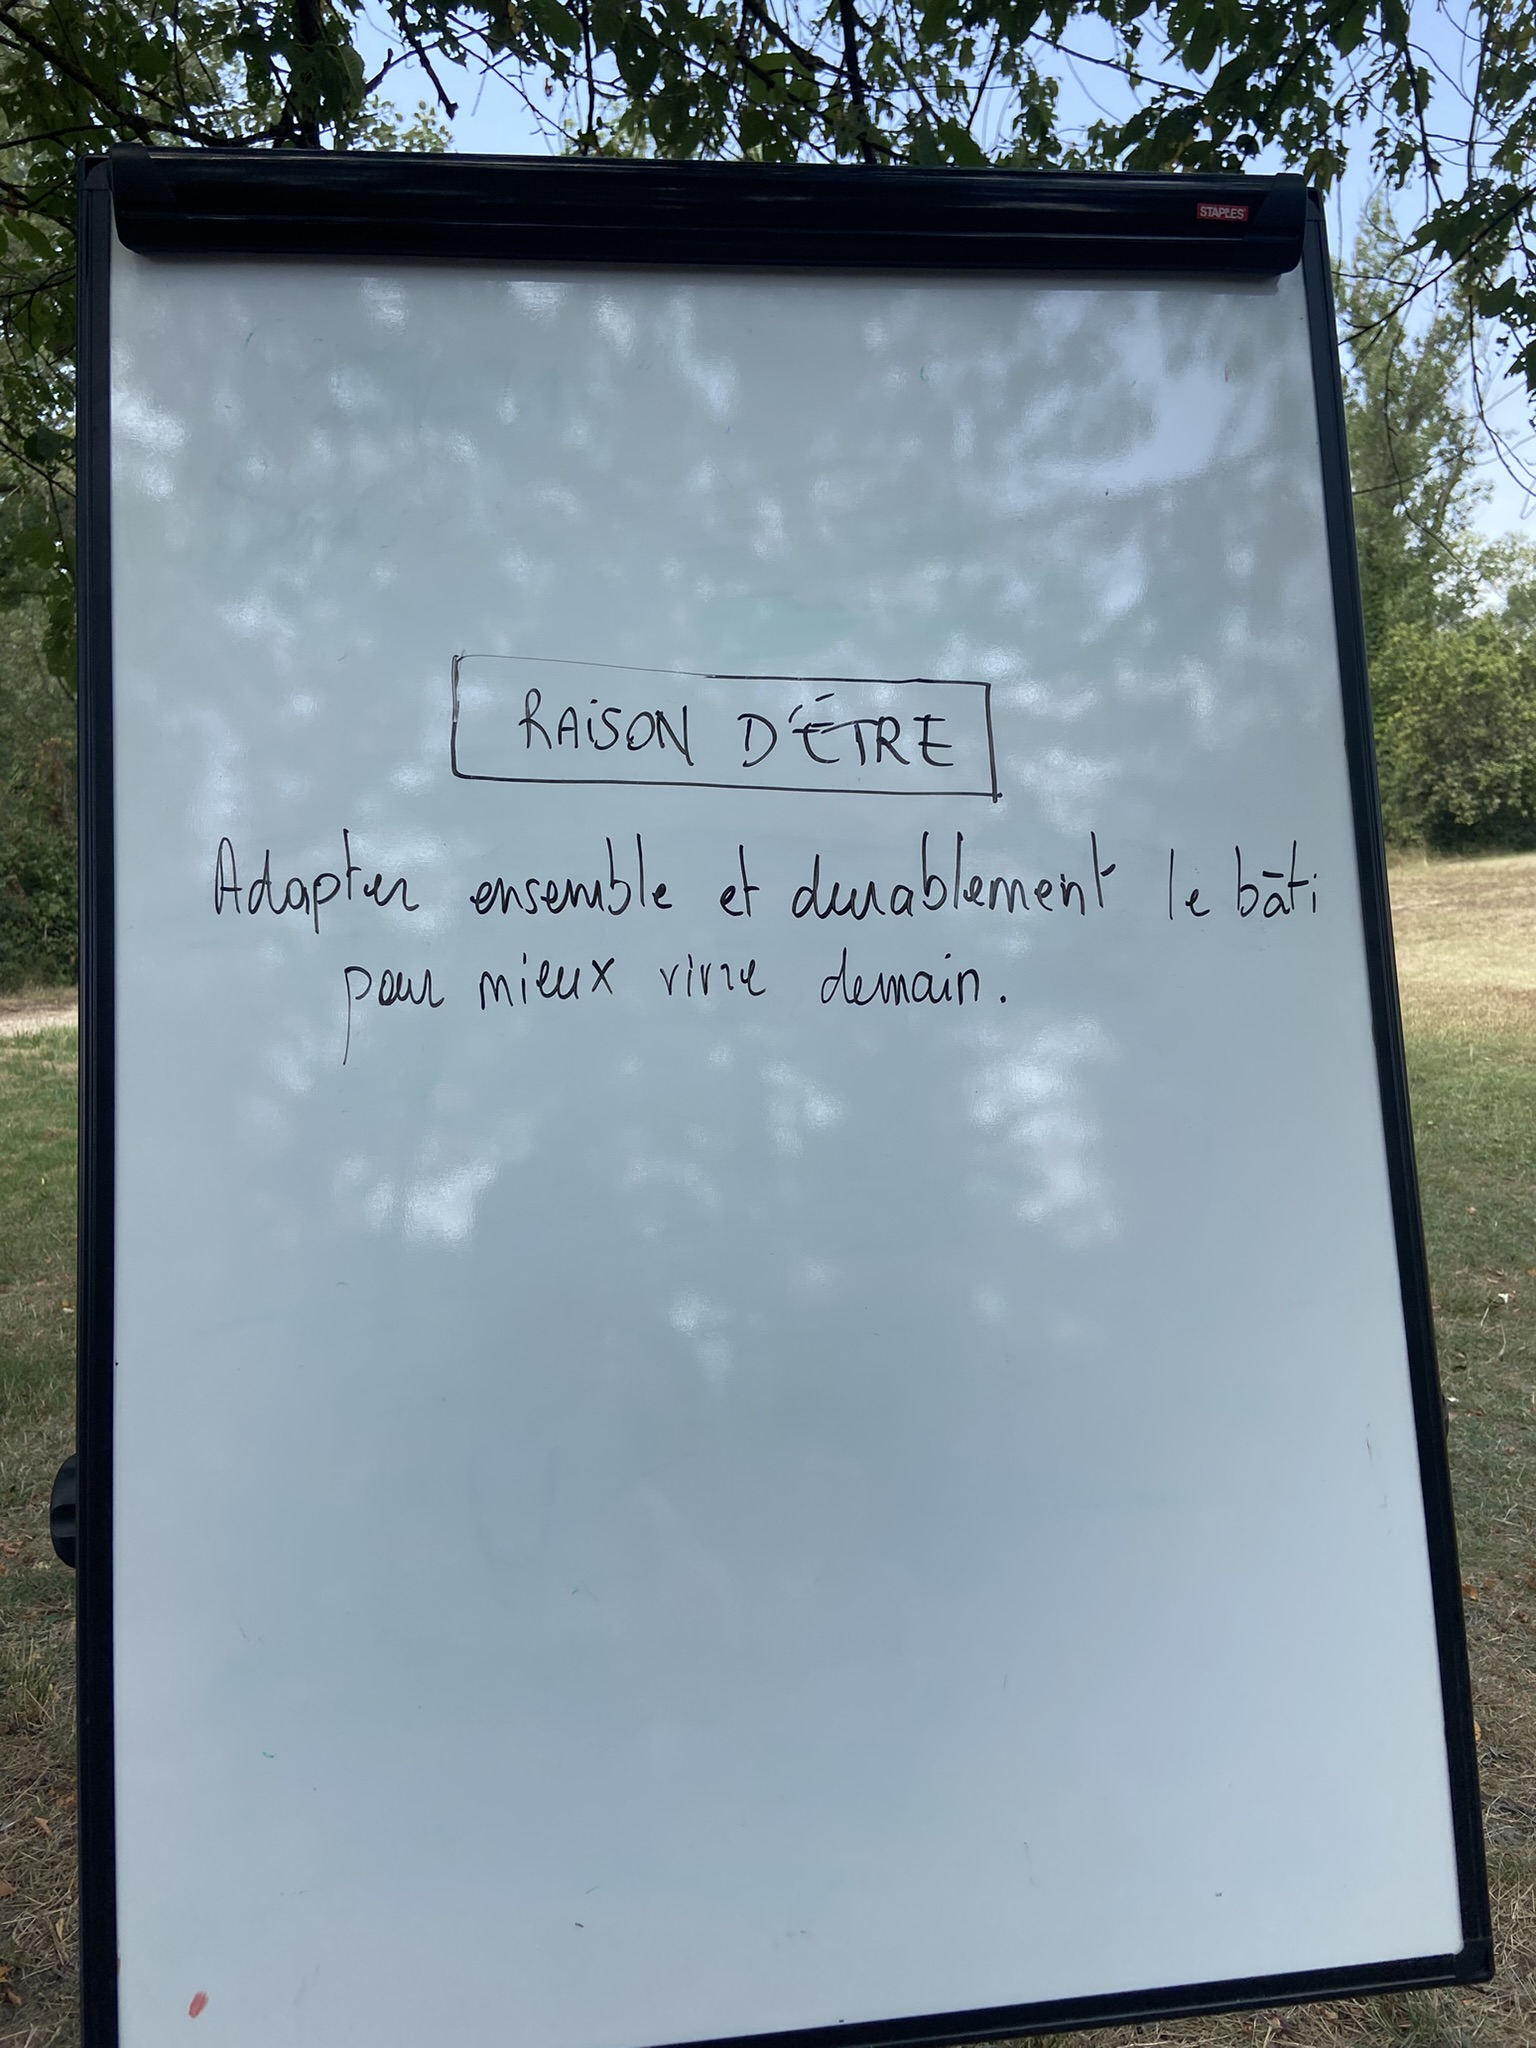 STAPLES
RAISON D'ÊTRE
Adapter ensemble et durablement le bâti
pour mieux vivre demain.